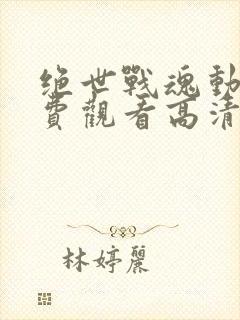 絕世戰魂動
費觀看高清
林婷麗